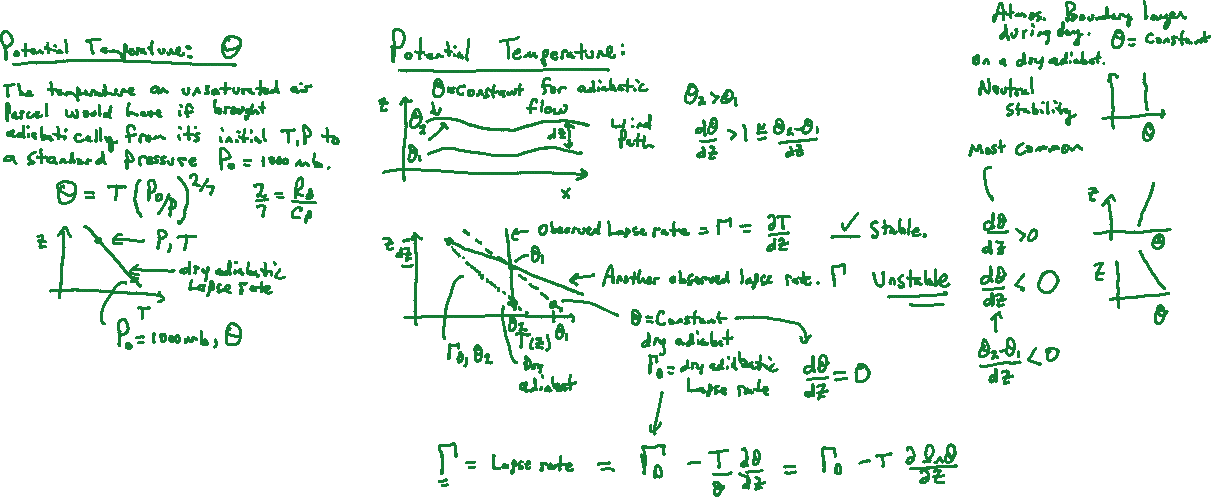 Potential Temperature: Θ
The temperature an unsaturated air
Parcel would have if brought
adiabatically from it's initial T,P to
a standard pressure P₀ = 1000 mb.
Θ = T (P₀/P)^2/7 2/7 = R_D/C_P
z
P, T
dry adiabatic
Lapse rate
T
P₀ = 1000 mb, Θ
Potential Temperature:
θ = Constant for adiabatic
flow
z
θ₂
θ₁
dz
Wind
Path
x
θ₂ > θ₁
dθ/dz > 1 ≅ θ₂-θ₁/dz
z
dz
Observed Lapse rate = Γ = ∂T/∂z
✓ Stable.
θ₁
Another observed lapse rate. Γ Unstable
θ₂
T(z)
θ₁
Γ_D, θ₂
Dry
adiabat
θ = Constant
dry adiabat
Γ_D = dry adiabatic
Lapse rate
dθ/dz = 0
Γ = Lapse rate = Γ_D - T/θ ∂θ/∂z = Γ_D - T ∂ ln θ/∂z
Atmos. Boundary layer
during day. θ = Constant
on a dry adiabat.
Neutral
Stability
θ
Most Common
dθ/dz > 0
z
θ
dθ/dz < 0
z
θ
θ₂-θ₁/dz < 0